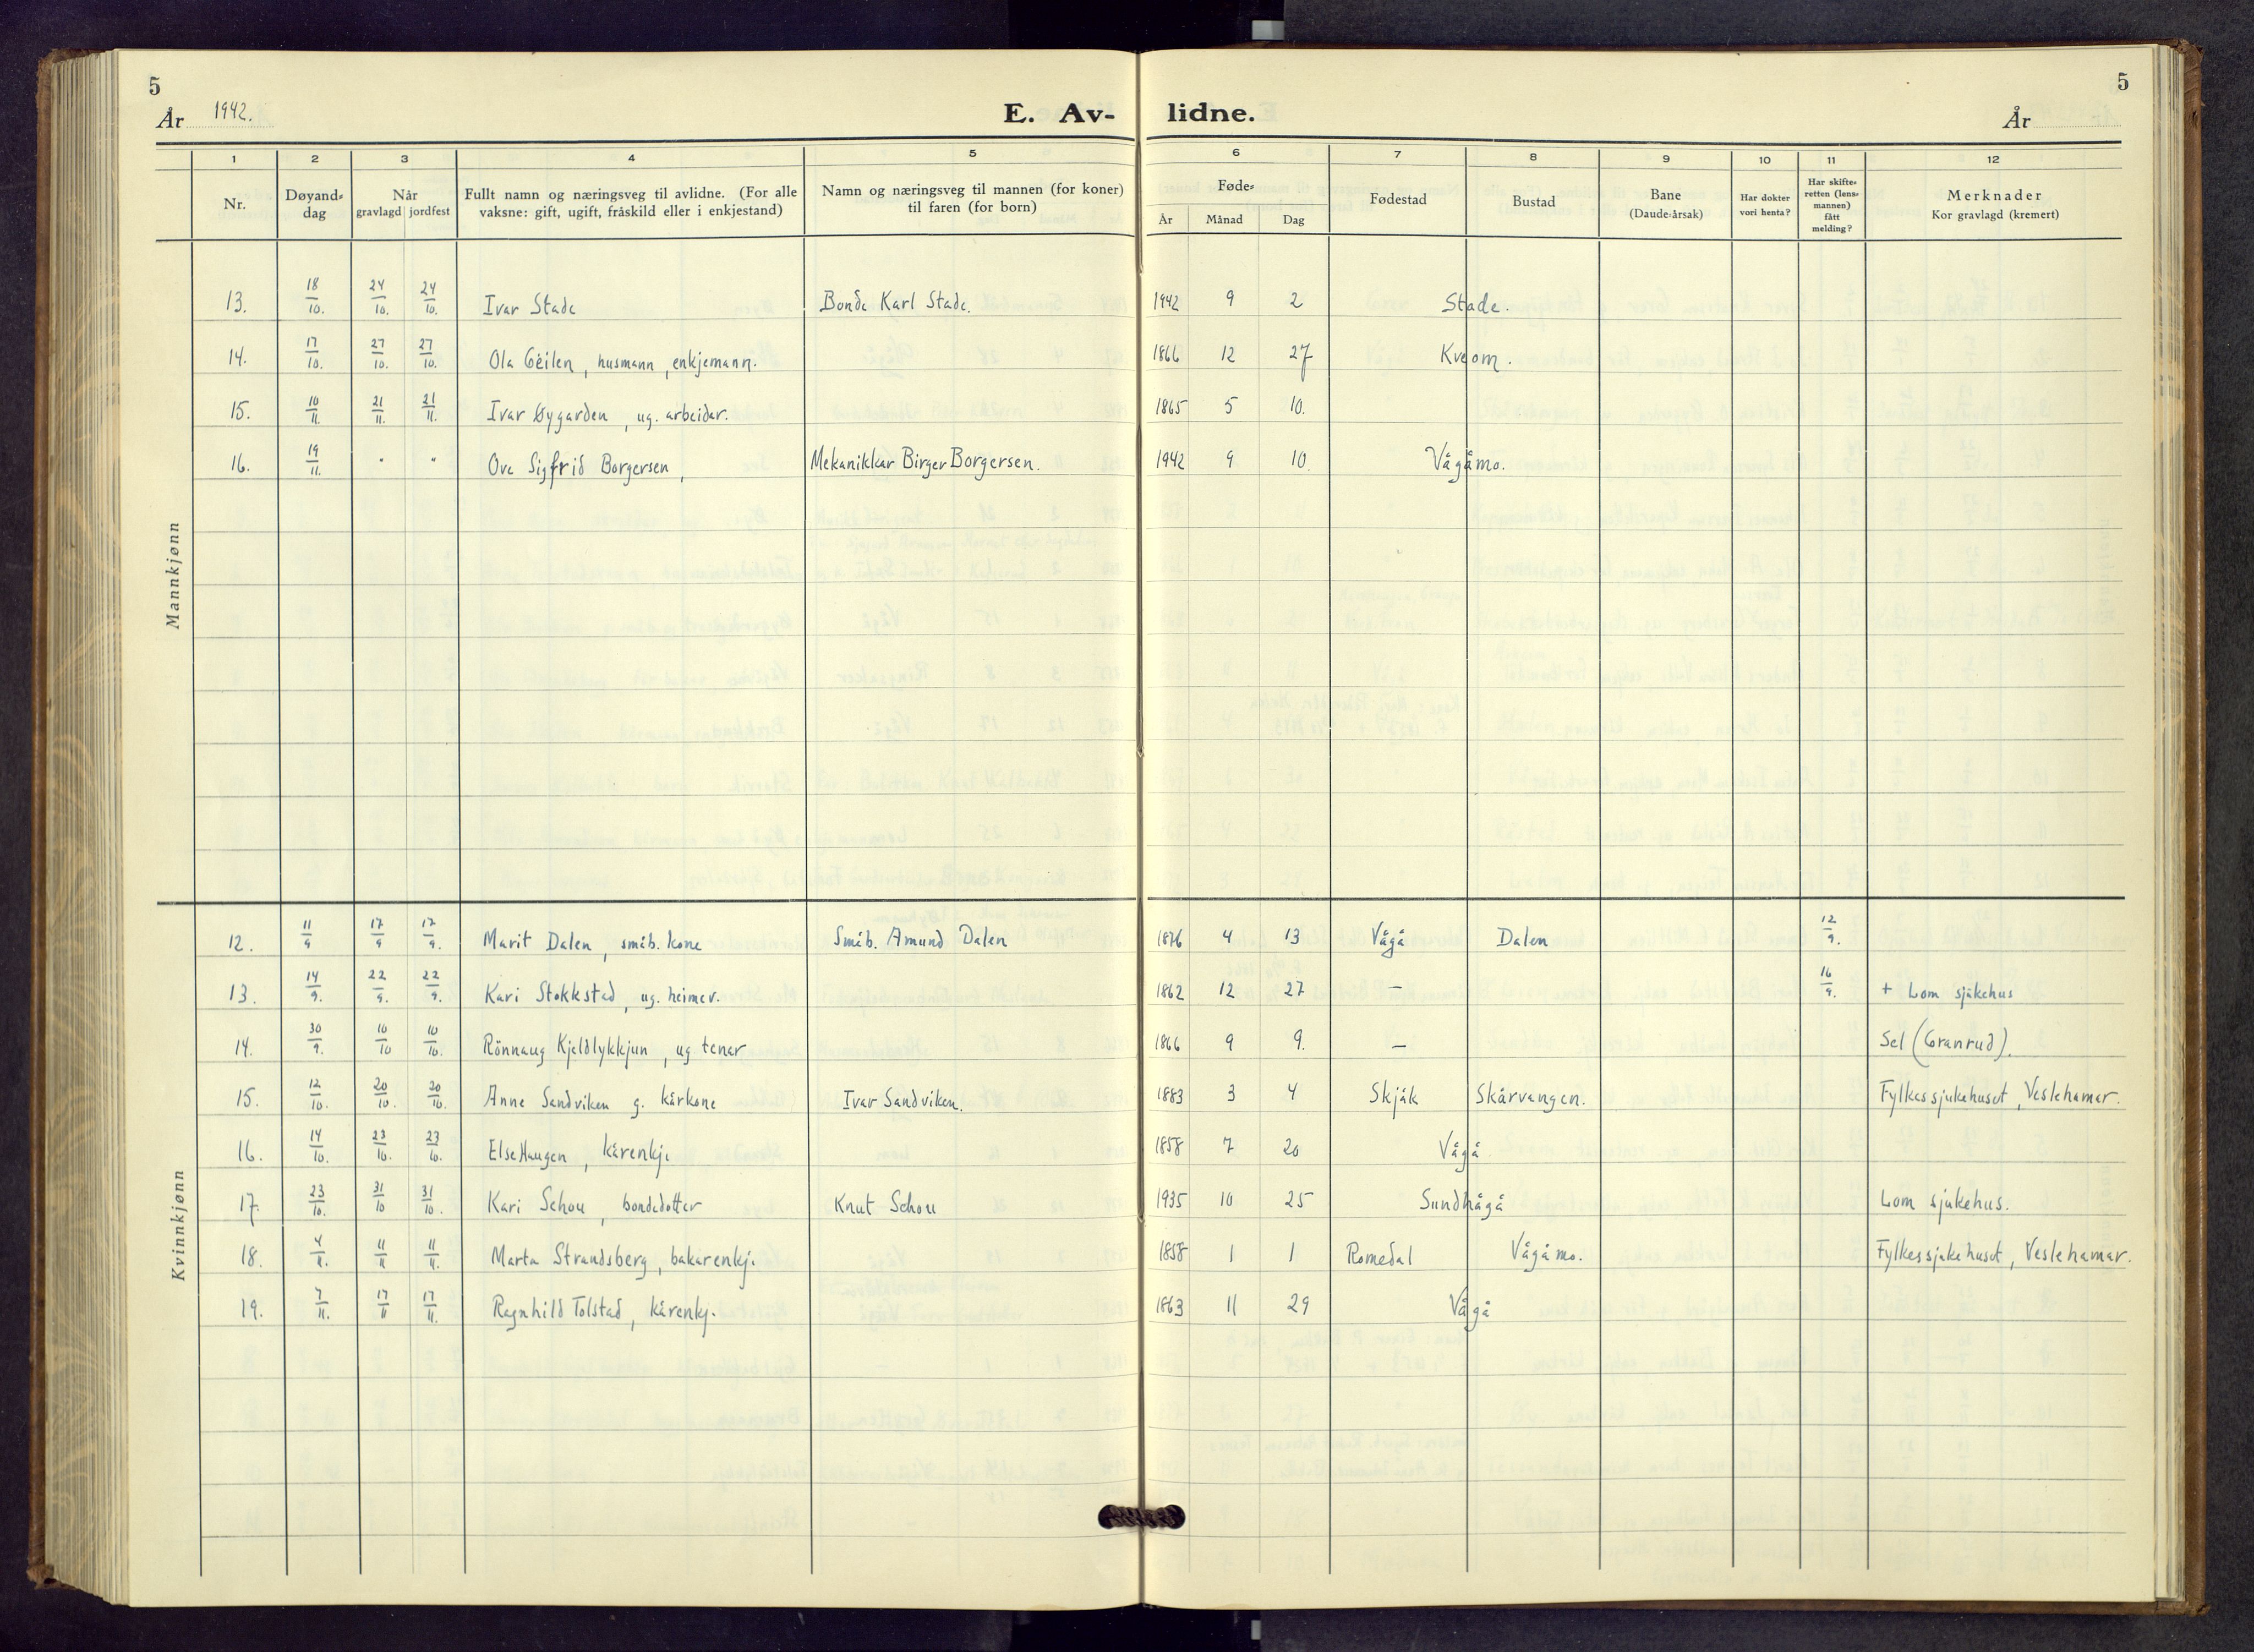 5
År 1942.
E. Av-
lidne.
5
År
1 2 3 4 5 6 7 8 9 10 11 12
Nr.
Døyand-
dag
Når
gravlagd jordfest
Fullt namn og næringsveg til avlidne. (For alle
vaksne: gift, ugift, fråskild eller i enkjestand)
Namn og næringsveg til mannen (for koner)
til faren (for born)
Føde-
År Månad Dag
Fødestad
Bustad
Bane
(Daude-årsak)
Har dokter
vori henta?
Har skifte-
retten (lens-
mannen)
fått
melding?
Merknader
Kor gravlagd (kremert)
Mannkjønn
13. 18/10. 24/10. 24/10. Ivar Stade Bonde Karl Stade. 1942 9 2 Stade.
14. 17/10. 27/10. 27/10. Ola Geilen, husmann, enkjemann. 1866 12 27 Kveom.
15. 10/11. 21/11. 21/11. Ivar Øygarden, ug. arbeidar. 1865 5 10.
16. 19/11. " " Ove Sigfrid Borgersen, Mekanikkar Birger Borgersen. 1942 9 10. Vågåmo.
Kvinnkjønn
12. 11/9 17/9 17/9. Marit Dalen, småb. kone Småb. Amund Dalen 1876 4 13 Vågå Dalen 12/9.
13. 14/9. 22/9. 22/9. Kari Stokkstad, ug. heimev. 1862 12 27 — 16/9. + Lom sjukehus
14. 30/9. 10/10 10/10. Rönnaug Kjeldlykkjun, ug tenar 1866 9 9. — Sel (Granrud).
15. 12/10. 20/10. 20/10. Anne Sandviken g. kårkone Ivar Sandviken. 1883 3 4 Skjåk Skårvangen. Fylkessjukehuset, Veslehamar.
16. 14/10. 23/10. 23/10. Else Haugen, kårenkje 1858 7 20 Vågå.
17. 23/10. 31/10 31/10. Kari Schou, bondedotter Knut Schou 1935 10 25 Sundhågå Lom sjukehus.
18. 4/11. 11/11 11/11. Marta Strandsberg, bakarenkje 1858 1 1 Romedal Vågåmo. Fylkessjukehuset, Veslehamar.
19. 7/11. 17/11 17/11. Ragnhild Tolstad, kårenkj. 1863 11 29 Vågå